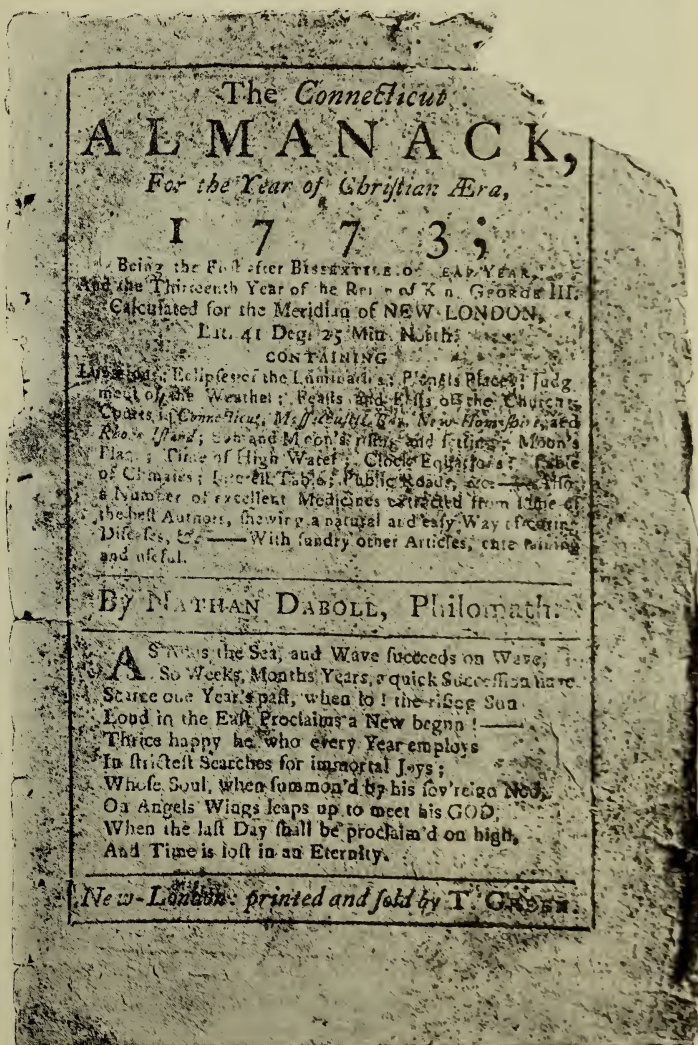 The Connecticut
ALMANACK,
For the Year of Chriſtian Æra,
1773;
Being the Firſt after BISSEXTILE or LEAP YEAR,
And the Thirteenth Year of the Reign of K GEORGE III.
Calculated for the Meridian of NEW-LONDON,
Lat. 41 Deg. 25 Min. North;
CONTAINING
Eclipſes of the Luminaries; Planets Places; Judg
ment of the Weather; Feaſts and Faſts of the Church;
Courts in Connecticut, New-Hampſhire, and
Rhode Iſland; Sun and Moon's riſing and ſetting; Moon's
Place; Time of High Water; Clock Table
of Climates; Intereſt Table; Public Roads, &c.— Alſo,
a Number of excellent Medicines extracted from ſome of
the beſt Authors, ſhewing a natural and eaſy Way of curing
Diſeaſes, &c.——With ſundry other Articles, entertaining
and uſeful.
By NATHAN DABOLL, Philomath.
AS the Sea, and Wave ſucceeds on Wave,
So Weeks, Months Years, a quick Succeſſion have.
Scarce one Year's paſt, when lo! the riſing Sun
Loud in the Eaſt Proclaims a New begun!——
Thrice happy he who every Year employs
In ſtricteſt Searches for immortal Joys;
Whoſe Soul, when ſummon'd by his ſov'reign Nod,
On Angels Wings leaps up to meet his GOD;
When the laſt Day ſhall be proclaim'd on high,
And Time is loſt in an Eternity.
New-London: printed and ſold by T. GREEN.